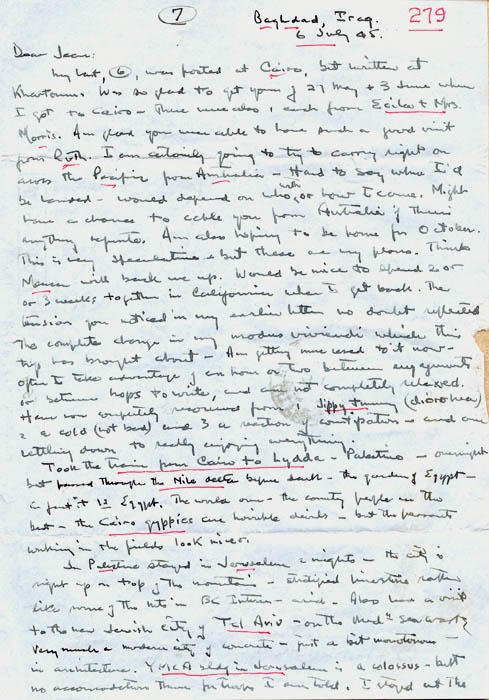 7
279
Baghdad, Iraq.
6 July 45.
Dear Jean:
My last, 6, was posted at Cairo, but written at
Khartoum. Was so glad to get yours of 27 May + 3 June when
I got to Cairo - there were also 1 each from Ecila + Mrs.
Morris. Am glad you were able to have such a good visit
from Ruth. I am certainly going to try to carry right on
across the Pacific from Australia - Hard to say when I'd
be landed - would depend on who with, or how I came. Might
have a chance to cable you from Australia if there's
anything definite. Am also hoping to be home for October.
This is very speculative but these are my plans. Think
will back me up. Would be nice to spend 2 or
or 3 weeks together in California when I get back. The
tension you noticed in my earlier letters no doubt reflected
the complete change in my modus viviendi which this
trip has brought about - Am getting more used to it now -
often I take advantage of an hour or two between engagements
or between hops to write, and am not completely relaxed.
Have now completely recovered from 1 Jippy tummy (diorrhea)
2 a cold (not bad) and 3 a reaction of constipation - and am
settling down to really enjoying everything.
Took the train from Cairo to Lydda - Palestine - overnight
but passed through the Nile delta before dark - the garden of Egypt -
in fact it is Egypt. The world over - the country people are the
best - the Cairo gyppies are horrible devils - but the peasants
working in the fields look nicer.
In Palestine stayed in Jerusalem 2 nights - the city is
right up on top of the mountain - stratified limestone rather
like some of the hills in BC Interior - arid. Also had a visit
to the new Jewish city of Tel Aviv - on the Medn sea
Very much a modern city of concrete - just a bit monotonous
in architecture. YMCA bldg in Jerusalem is a colossus - but
no accomodation there for I am told. I stayed at the